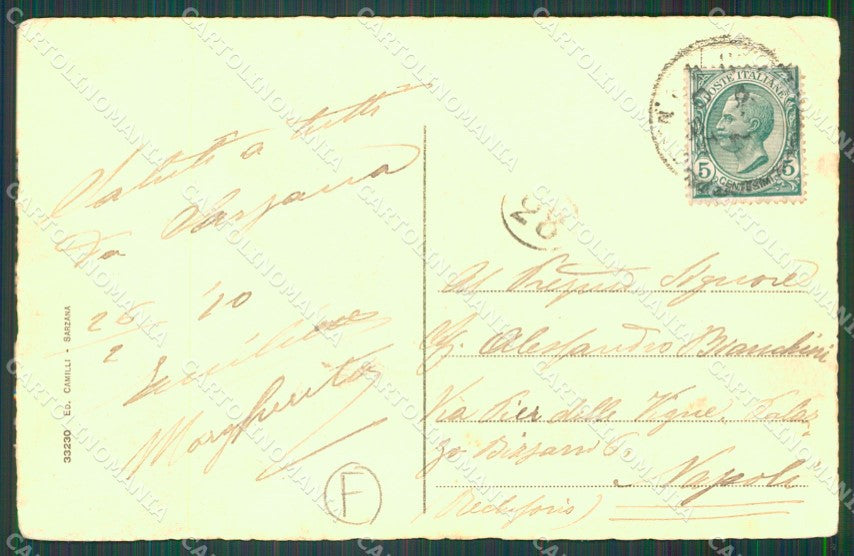 Saluti a tutti
Da Sarzana
26/2 '10
Margherita
33230 ED. CAMILLI - SARZANA
F
POSTE ITALIANE
5 CENTESIMI 5
28
Al Pregmo Signore
Alessandro Bianchini
Via Pier delle Vigne. Palaz-
zo Bizzarri P.
Napoli
CARTOLINOMANIA